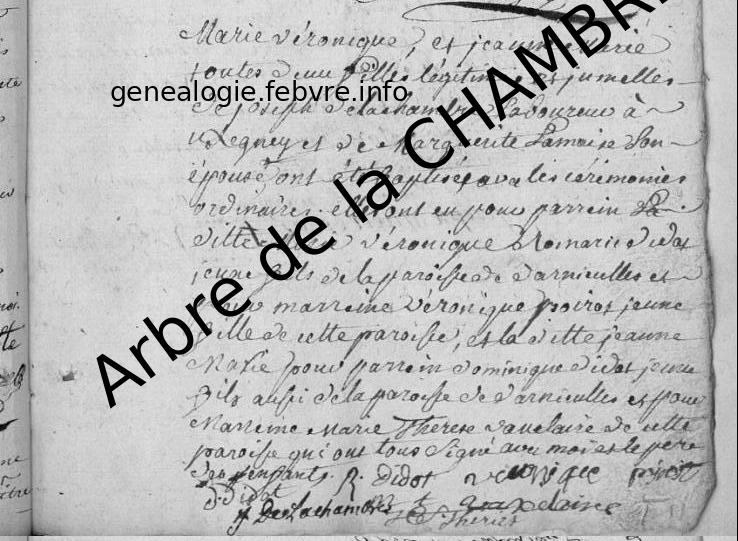 Marie véronique, et jeanne Marie
toutes deux filles légitimes et jumelles
genealogie.febvre.info
de joseph delachambre Laboureur à
Legney et de Marguerite Lamaise Son
épouse ont été Baptisées avec les cérémonies
ordinaires, elles ont eu pour parrein La
ditte Marie véronique Romarie didot
jeune fils de la paroisse de darnieulles et
pour marreine véronique poirot jeune
fille de cette paroisse, et la ditte jeanne
Marie pour parrein dominique didot jeune
fils aussi de la paroisse de darnieulles et pour
Marreine Marie Therese vauclaire de cette
paroisse qui ont tous Signé avec moi et le pere
des enfants. R. Didot veronique poirot
d. didot
j Delachambre
Therese
Arbre de la CHAMBRE